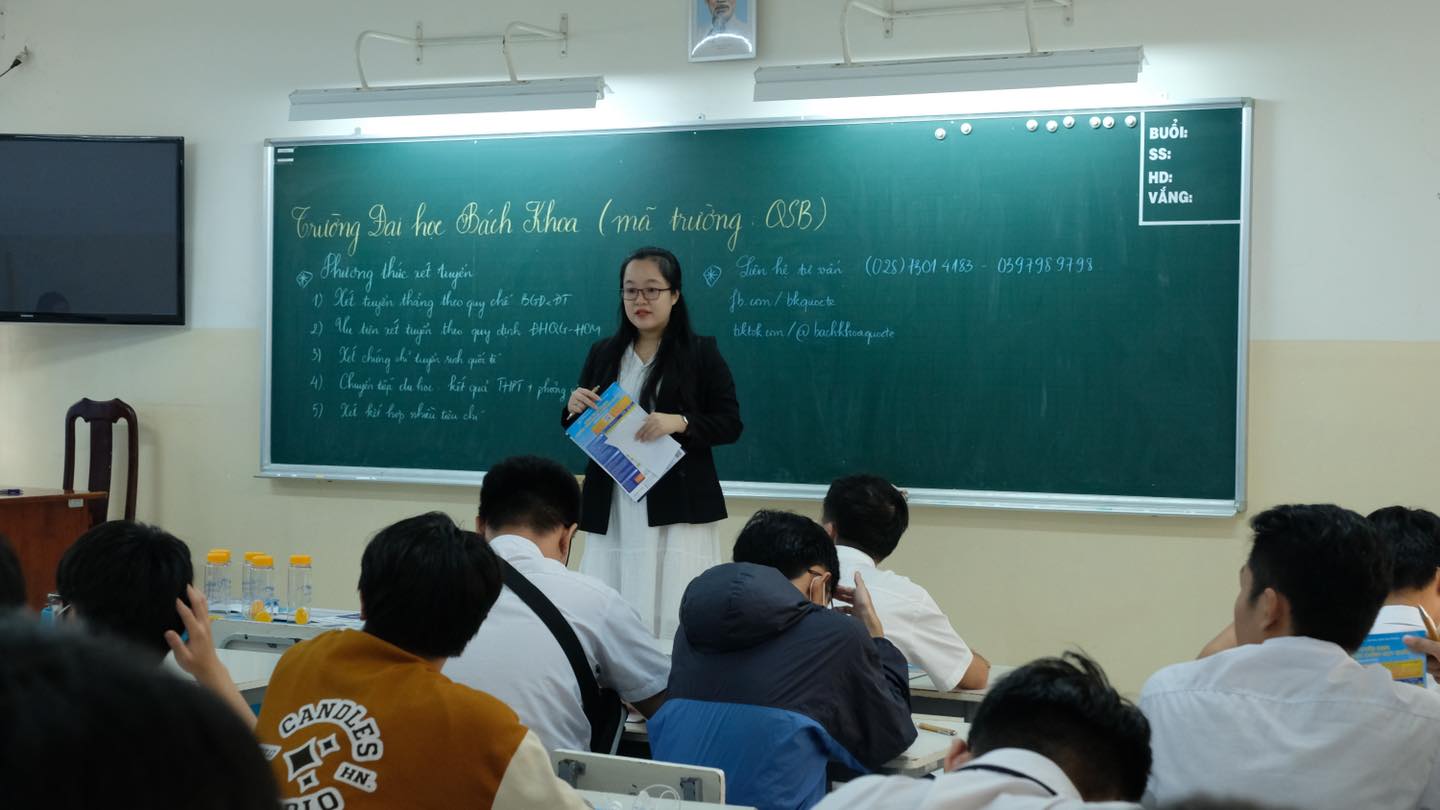 BUỔI:
SS:
HD:
VẮNG:
Trường Đại học Bách Khoa (mã trường: QSB)
Phương thức xét tuyển
1) Xét tuyển thẳng theo quy chế BGD&ĐT
2) Ưu tiên xét tuyển theo quy định ĐHQG-HCM
3) Xét chứng chỉ tuyển sinh quốc tế
4) Chuyển tiếp du học: kết quả THPT + phỏng
5) Xét kết hợp nhiều tiêu chí
Liên hệ tư vấn (028) 7301 4183 - 039 798 9798
fb.com/bkquocte
tiktok.com/@bachkhoaquocte
CANDLES
HN.